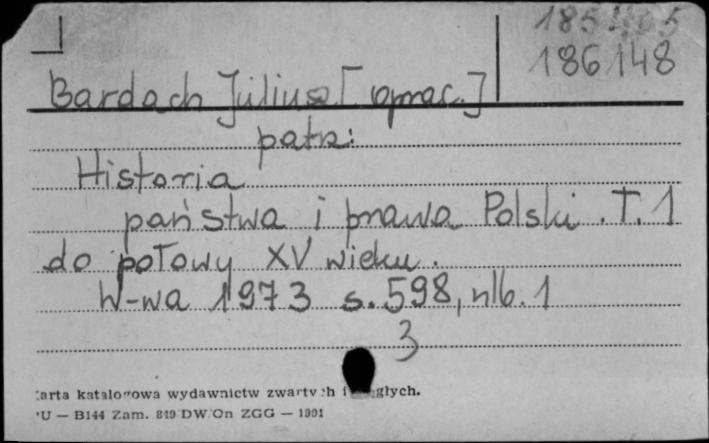 186148
Bardach Juliusz [oprac.]
patrz:
Historia
państwa i prawa Polski. T. 1
do połowy XV wieku.
W-wa 1973 s. 598, nlb. 1
3
karta katalogowa wydawnictw zwartych i ciągłych.
PU — B144 Zam. 819 DW On ZGG — 1991